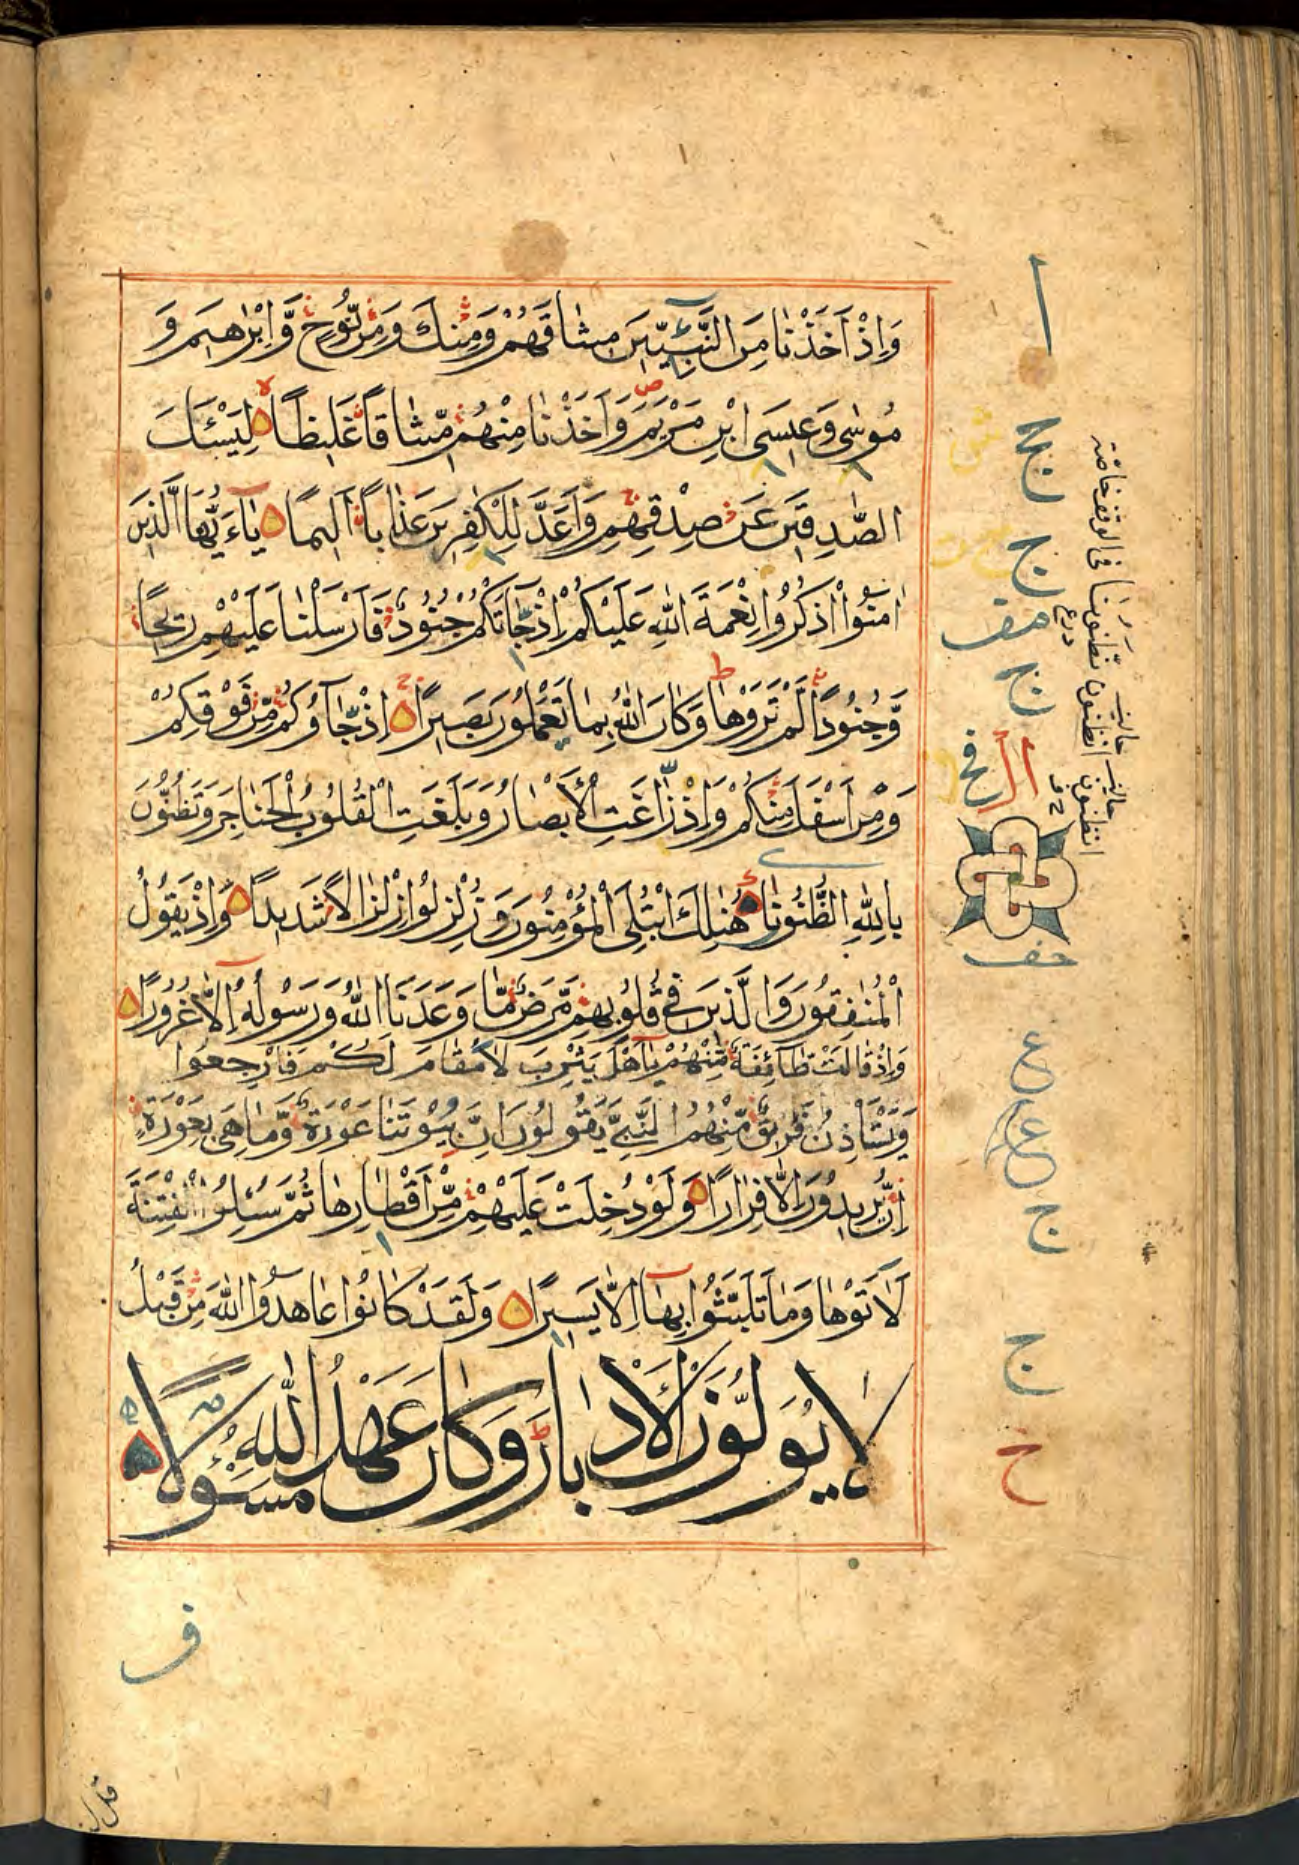 وَاِذْ اَخَذْنَا مِنَ النَّبِيّٖنَ مِيثَاقَهُمْ وَمِنْكَ وَمِنْ نُوحٍ وَّاِبْرٰهٖيمَ وَ
مُوسٰى وَعِيسَى ابْنِ مَرْيَمَ وَاَخَذْنَا مِنْهُمْ مِّيثَاقًا غَلِيظًا لِيَسْئَلَ
الصّٰدِقِينَ عَنْ صِدْقِهِمْ وَاَعَدَّ لِلْكٰفِرِينَ عَذَابًا اَلِيمًا يٰاَيُّهَا الَّذِينَ
اٰمَنُوا اذْكُرُوا نِعْمَةَ اللّٰهِ عَلَيْكُمْ اِذْ جَاءَتْكُمْ جُنُودٌ فَاَرْسَلْنَا عَلَيْهِمْ رِيحًا
وَّجُنُودًا لَّمْ تَرَوْهَا وَكَانَ اللّٰهُ بِمَا تَعْمَلُونَ بَصِيرًا اِذْ جَاؤُكُمْ مِّنْ فَوْقِكُمْ
وَمِنْ اَسْفَلَ مِنْكُمْ وَاِذْ زَّاغَتِ الْاَبْصَارُ وَبَلَغَتِ الْقُلُوبُ الْحَنَاجِرَ وَتَظُنُّونَ
بِاللّٰهِ الظُّنُونَا هُنَالِكَ ابْتُلِيَ الْمُؤْمِنُونَ وَزُلْزِلُوا زِلْزَالًا شَدِيدًا وَاِذْ يَقُولُ
الْمُنٰفِقُونَ وَالَّذِينَ فِي قُلُوبِهِمْ مَّرَضٌ مَّا وَعَدَنَا اللّٰهُ وَرَسُولُهُ اِلَّا غُرُورًا
وَاِذْ قَالَتْ طَائِفَةٌ مِّنْهُمْ يٰاَهْلَ يَثْرِبَ لَا مُقَامَ لَكُمْ فَارْجِعُوا
وَيَسْتَاْذِنُ فَرِيقٌ مِّنْهُمُ النَّبِيَّ يَقُولُونَ اِنَّ بُيُوتَنَا عَوْرَةٌ وَّمَا هِيَ بِعَوْرَةٍ
اِنْ يُّرِيدُونَ اِلَّا فِرَارًا وَلَوْ دُخِلَتْ عَلَيْهِمْ مِّنْ اَقْطَارِهَا ثُمَّ سُئِلُوا الْفِتْنَةَ
لَاٰتَوْهَا وَمَا تَلَبَّثُوا بِهَا اِلَّا يَسِيرًا وَلَقَدْ كَانُوا عَاهَدُوا اللّٰهَ مِنْ قَبْلُ
لَا يُوَلُّونَ الْاَدْبَارَ وَكَانَ عَهْدُ اللّٰهِ مَسْئُولًا
ا
ج
ج
ج
ع
ع
ج
ج
ح
ف